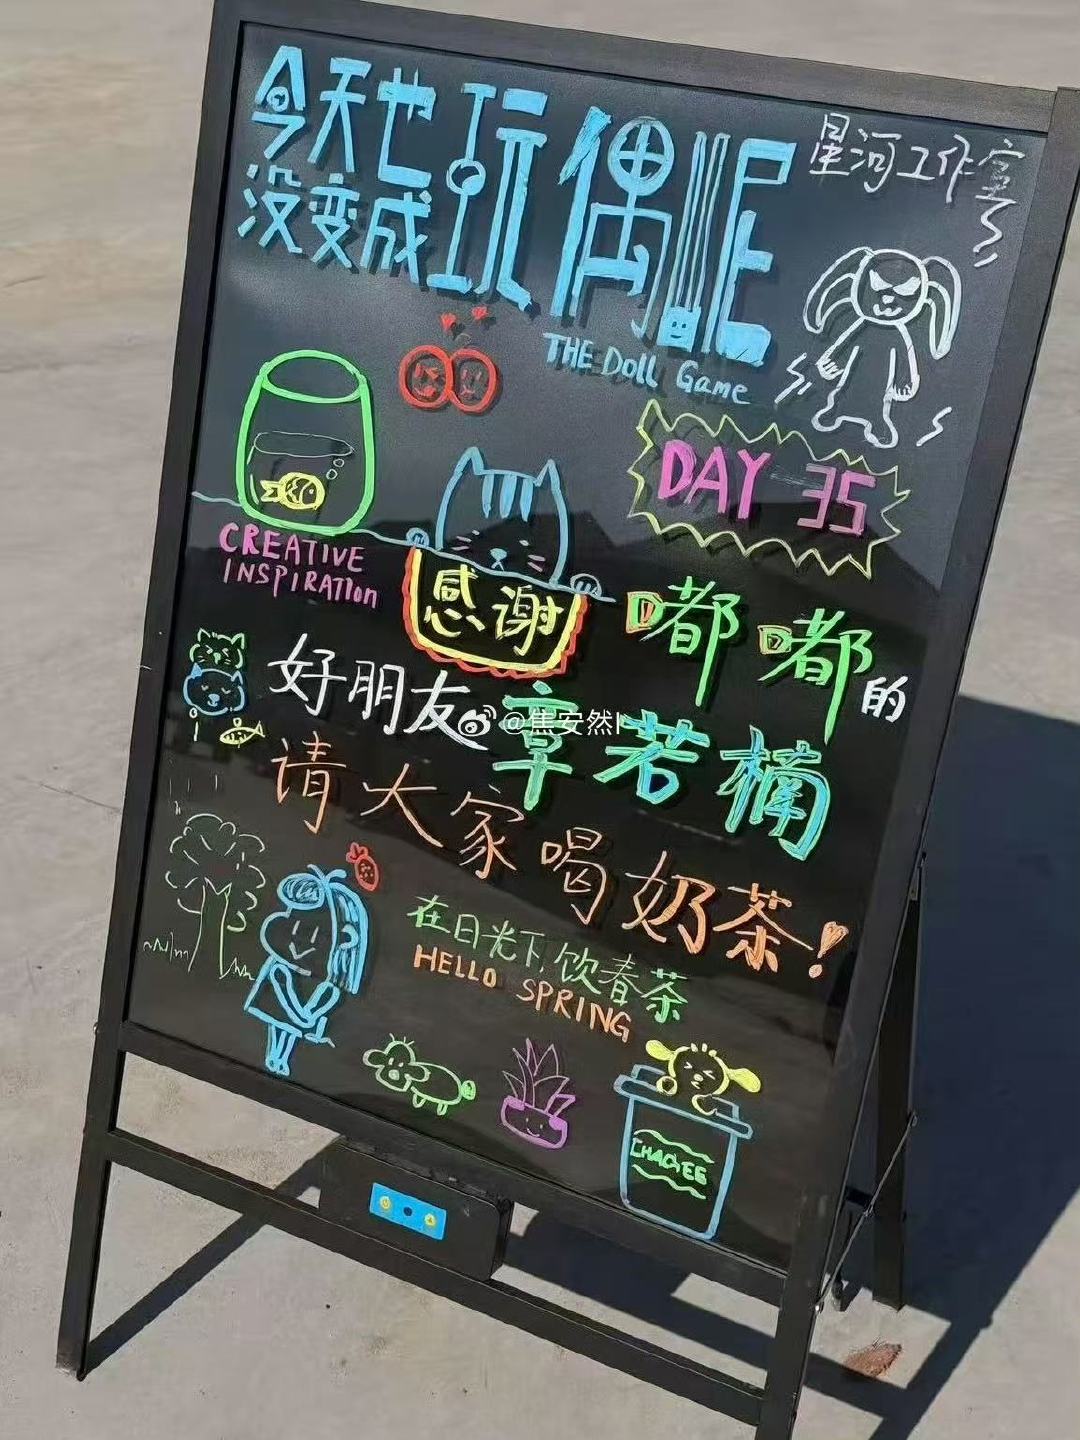 今天也
没变成
玩偶呢
星河工作室
THE Doll Game
DAY 35
CREATIVE
INSPIRATIOn
感谢
嘟嘟的
好朋友
章若楠
@焦安然l
请大家喝奶茶!
在日光下,饮春茶
HELLO SPRING
CHAGEE